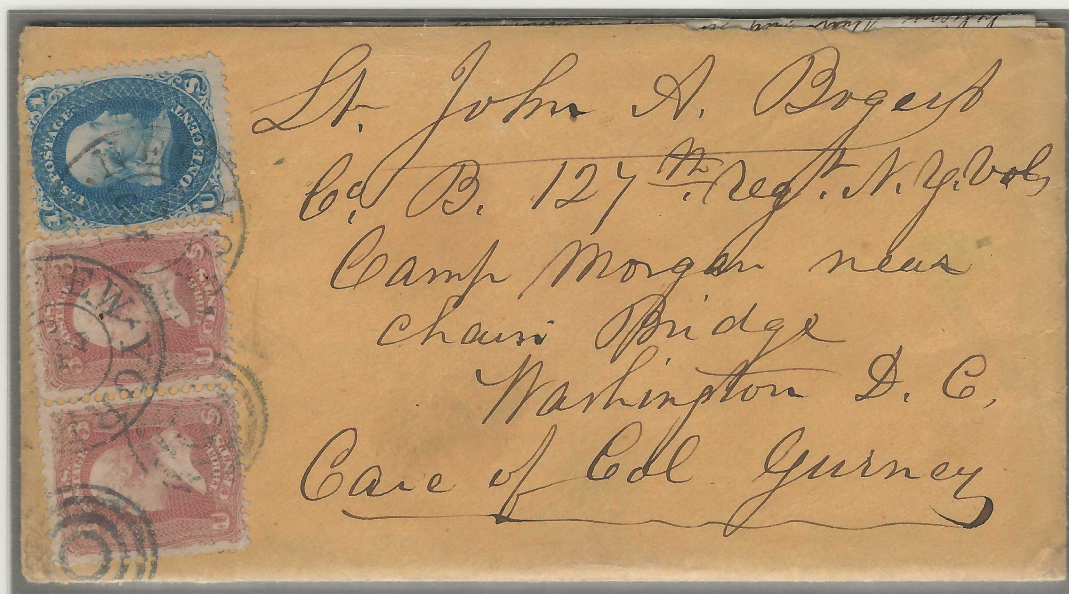 Lt. John A. Bogert
Co. B. 127th Regt. N.Y. Vols
Camp Morgan near
Chain Bridge
Washington D. C.
Care of Col Gurney
U.S. POSTAGE
ONE CENT
NEW-YORK